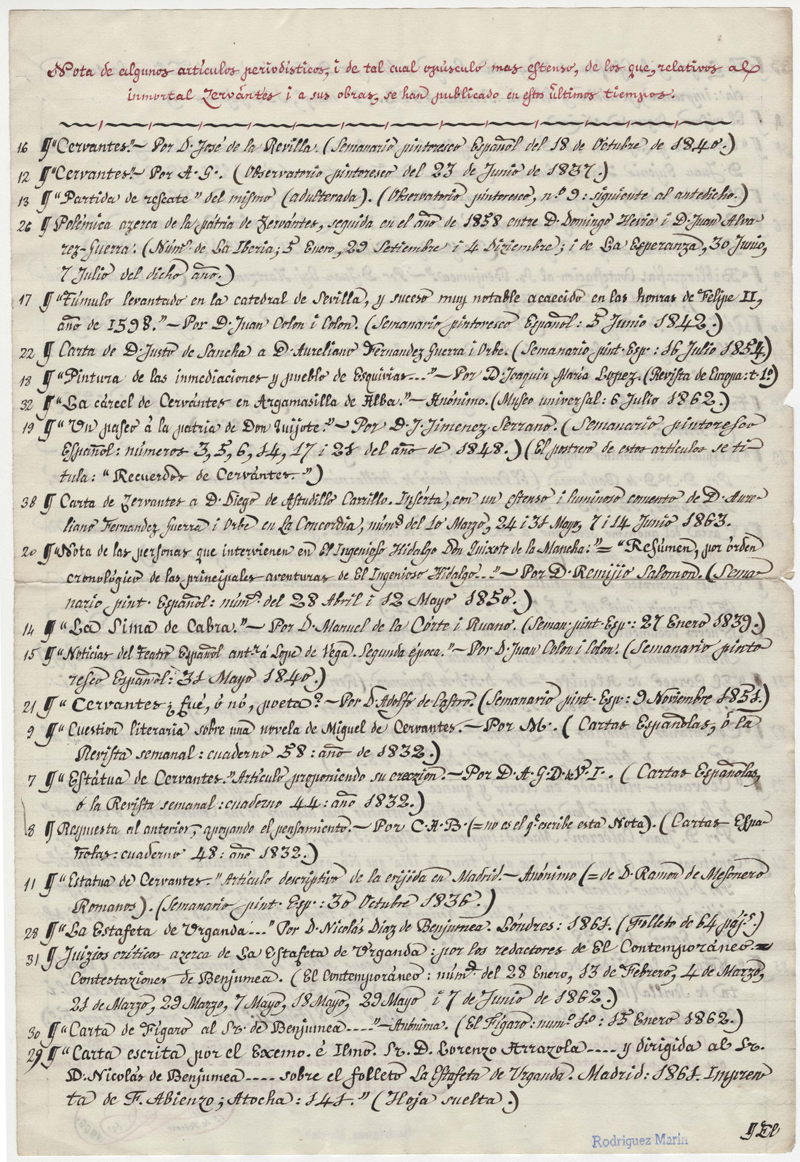 Nota de algunos artículos periodísticos, i de tal cual opúsculo mas estenso, de los que, relativos al
inmortal Zervántes i a sus obras, se han publicado en estos últimos tiempos.
16 ¶ "Cervantes."— Por D. José de la Revilla. (Semanario pintoresco Español del 18 de Octubre de 1840.)
12 ¶ "Cervantes." Por A. G. (Observatorio pintoresco del 23 de Junio de 1837.)
13 ¶ "Partida de rescate" del mismo (adulterada). (Observatorio pintoresco, n.º 9: siguiente al antedicho.)
26 ¶ Polémica azerca de la patria de Zervántes, seguida en el año de 1858 entre D. Domingo Hevia i D. Juan Alva-
rez-Guerra. (Núm.s de La Iberia; 5 Enero, 29 Setiembre i 4 Diziembre; i de La Esperanza, 30 Junio,
7 Julio del dicho año.)
17 ¶ "Túmulo levantado en la catedral de Sevilla, y suceso muy notable acaecido en las honras de Felipe II,
año de 1598."— Por D. Juan Colon i Colon. (Semanario pintoresco Español: 5 Junio 1842.)
22 ¶ Carta de D. Justo de Sancha a D. Aureliano Fernandez Guerra i Orbe. (Semanario pint. Esp.: 16 Julio 1854)
18 ¶ "Pintura de las inmediaciones y pueblo de Esquivias..."— Por D. Joaquin María Lopez. (Revista de Europa: t. 1º)
32 ¶ "La cárcel de Cervántes en Argamasilla de Alba."— Anónimo. (Museo universal: 6 Julio 1862.)
19 ¶ "Un paseo á la patria de Don Quijote."— Por D. J. Jimenez Serrano. (Semanario pintoresco
Español: números 3, 5, 6, 14, 17 i 21 del año de 1848.) (El postrero de estos artículos se ti-
tula: "Recuerdos de Cervántes.")
38 ¶ Carta de Zervantes a D. Diego de Astudillo Carrillo. Insérta, con un estenso i luminoso comento de D. Aure-
liano Fernandez Guerra i Orbe en La Concordia, núm.s del 10 Marzo, 24 i 31 Mayo, 7 i 14 Junio 1863.
20 ¶ "Nota de las personas que intervienen en El Ingenioso Hidalgo Don Quixote de la Mancha:"= "Resúmen, por órden
cronológico de las principales aventuras de El Ingenioso Hidalgo..."— Por D. Remijio Salomon. (Sema-
nario pint. Español: núm.s del 28 Abril i 12 Mayo 1850.)
14 ¶ "La Sima de Cabra."— Por D. Manuel de la Córte i Ruano. (Seman. pint. Esp.: 27 Enero 1839.)
15 ¶ "Noticias del Teatro Español ant.r á Lope de Vega. Segunda época."— Por D. Juan Colon i Colon. (Semanario pinto-
resco Español: 31 Mayo 1840.)
21 ¶ "Cervantes ¿ fué, ó nó, poeta?"— Por D. Adolfo de Castro. (Semanario pint. Esp.: 9 Noviembre 1851.)
9 ¶ "Cuestion literaria sobre una novela de Miguel de Cervantes.— Por M. (Cartas Españolas, ó la
Revista semanal: cuaderno 58: año de 1832.)
7 ¶ "Estátua de Cervantes." Artículo proponiendo su ereczion.— Por D. A. G. D. de V. I. (Cartas Españolas,
ó la Revista semanal: cuaderno 44: año 1832.)
8 ¶ Repuesta al anterior, apoyando el pensamiento.— Por C. A. B. (= no es el q.e escribe esta Nota). (Cartas Espa-
ñolas: cuaderno 48: año 1832.)
11 ¶ "Estatua de Cervantes." Artículo descriptivo de la erijida en Madrid.— Anónimo (= de D. Ramon de Mesonero
Romanos). (Semanario pint. Esp.: 30 Octubre 1836.)
28 ¶ "La Estafeta de Urganda..." Por D. Nicolás Diaz de Benjumea. Lóndres: 1861. (Folleto de 64 páj.s)
31 ¶ Juizios críticos azerca de La Estafeta de Urganda: por los redactores de El Contemporáneo.=
Contestaziones de Benjumea. (El Contemporáneo: núm.s del 28 Enero, 13 de Febrero, 4 de Marzo,
21 de Marzo, 29 Marzo, 7 Mayo, 18 Mayo, 29 Mayo i 7 de Junio de 1862.)
30 ¶ "Carta de Fígaro al Sr. de Benjumea...."— Anónima. (El Fígaro: num.º 1º: 15 Enero 1862.)
29 ¶ "Carta escrita por el Exemo. é Ilmo. Sr. D. Lorenzo Arrazola .... y dirigida al Sr.
D. Nicolás de Benjumea .... sobre el folleto La Estafeta de Urganda. Madrid: 1861. Impren-
ta de F. Abienzo; Atocha: 141." (Hoja suelta.)
¶ El
Rodríguez Marín